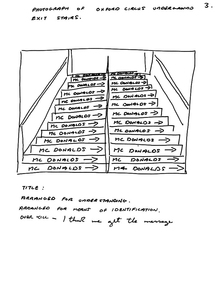 3.
PHOTOGRAPH OF OXFORD CIRCUS UNDERGROUND
EXIT STAIRS.
MC DONALDS → MC DONALDS →
MC DONALDS → MC DONALDS →
MC DONALDS → MC DONALDS →
MC DONALDS → MC DONALDS →
MC DONALDS → MC DONALDS →
MC DONALDS → MC DONALDS →
MC DONALDS → MC DONALDS →
MC DONALDS → MC DONALDS →
MC DONALDS → MC DONALDS →
MC DONALDS → MC DONALDS →
MC DONALDS → MC DONALDS →
TITLE:
ARRANGED FOR UNDERSTANDING.
ARRANGED FOR MEANS OF IDENTIFICATION.
OVER KILL – I think we get the message